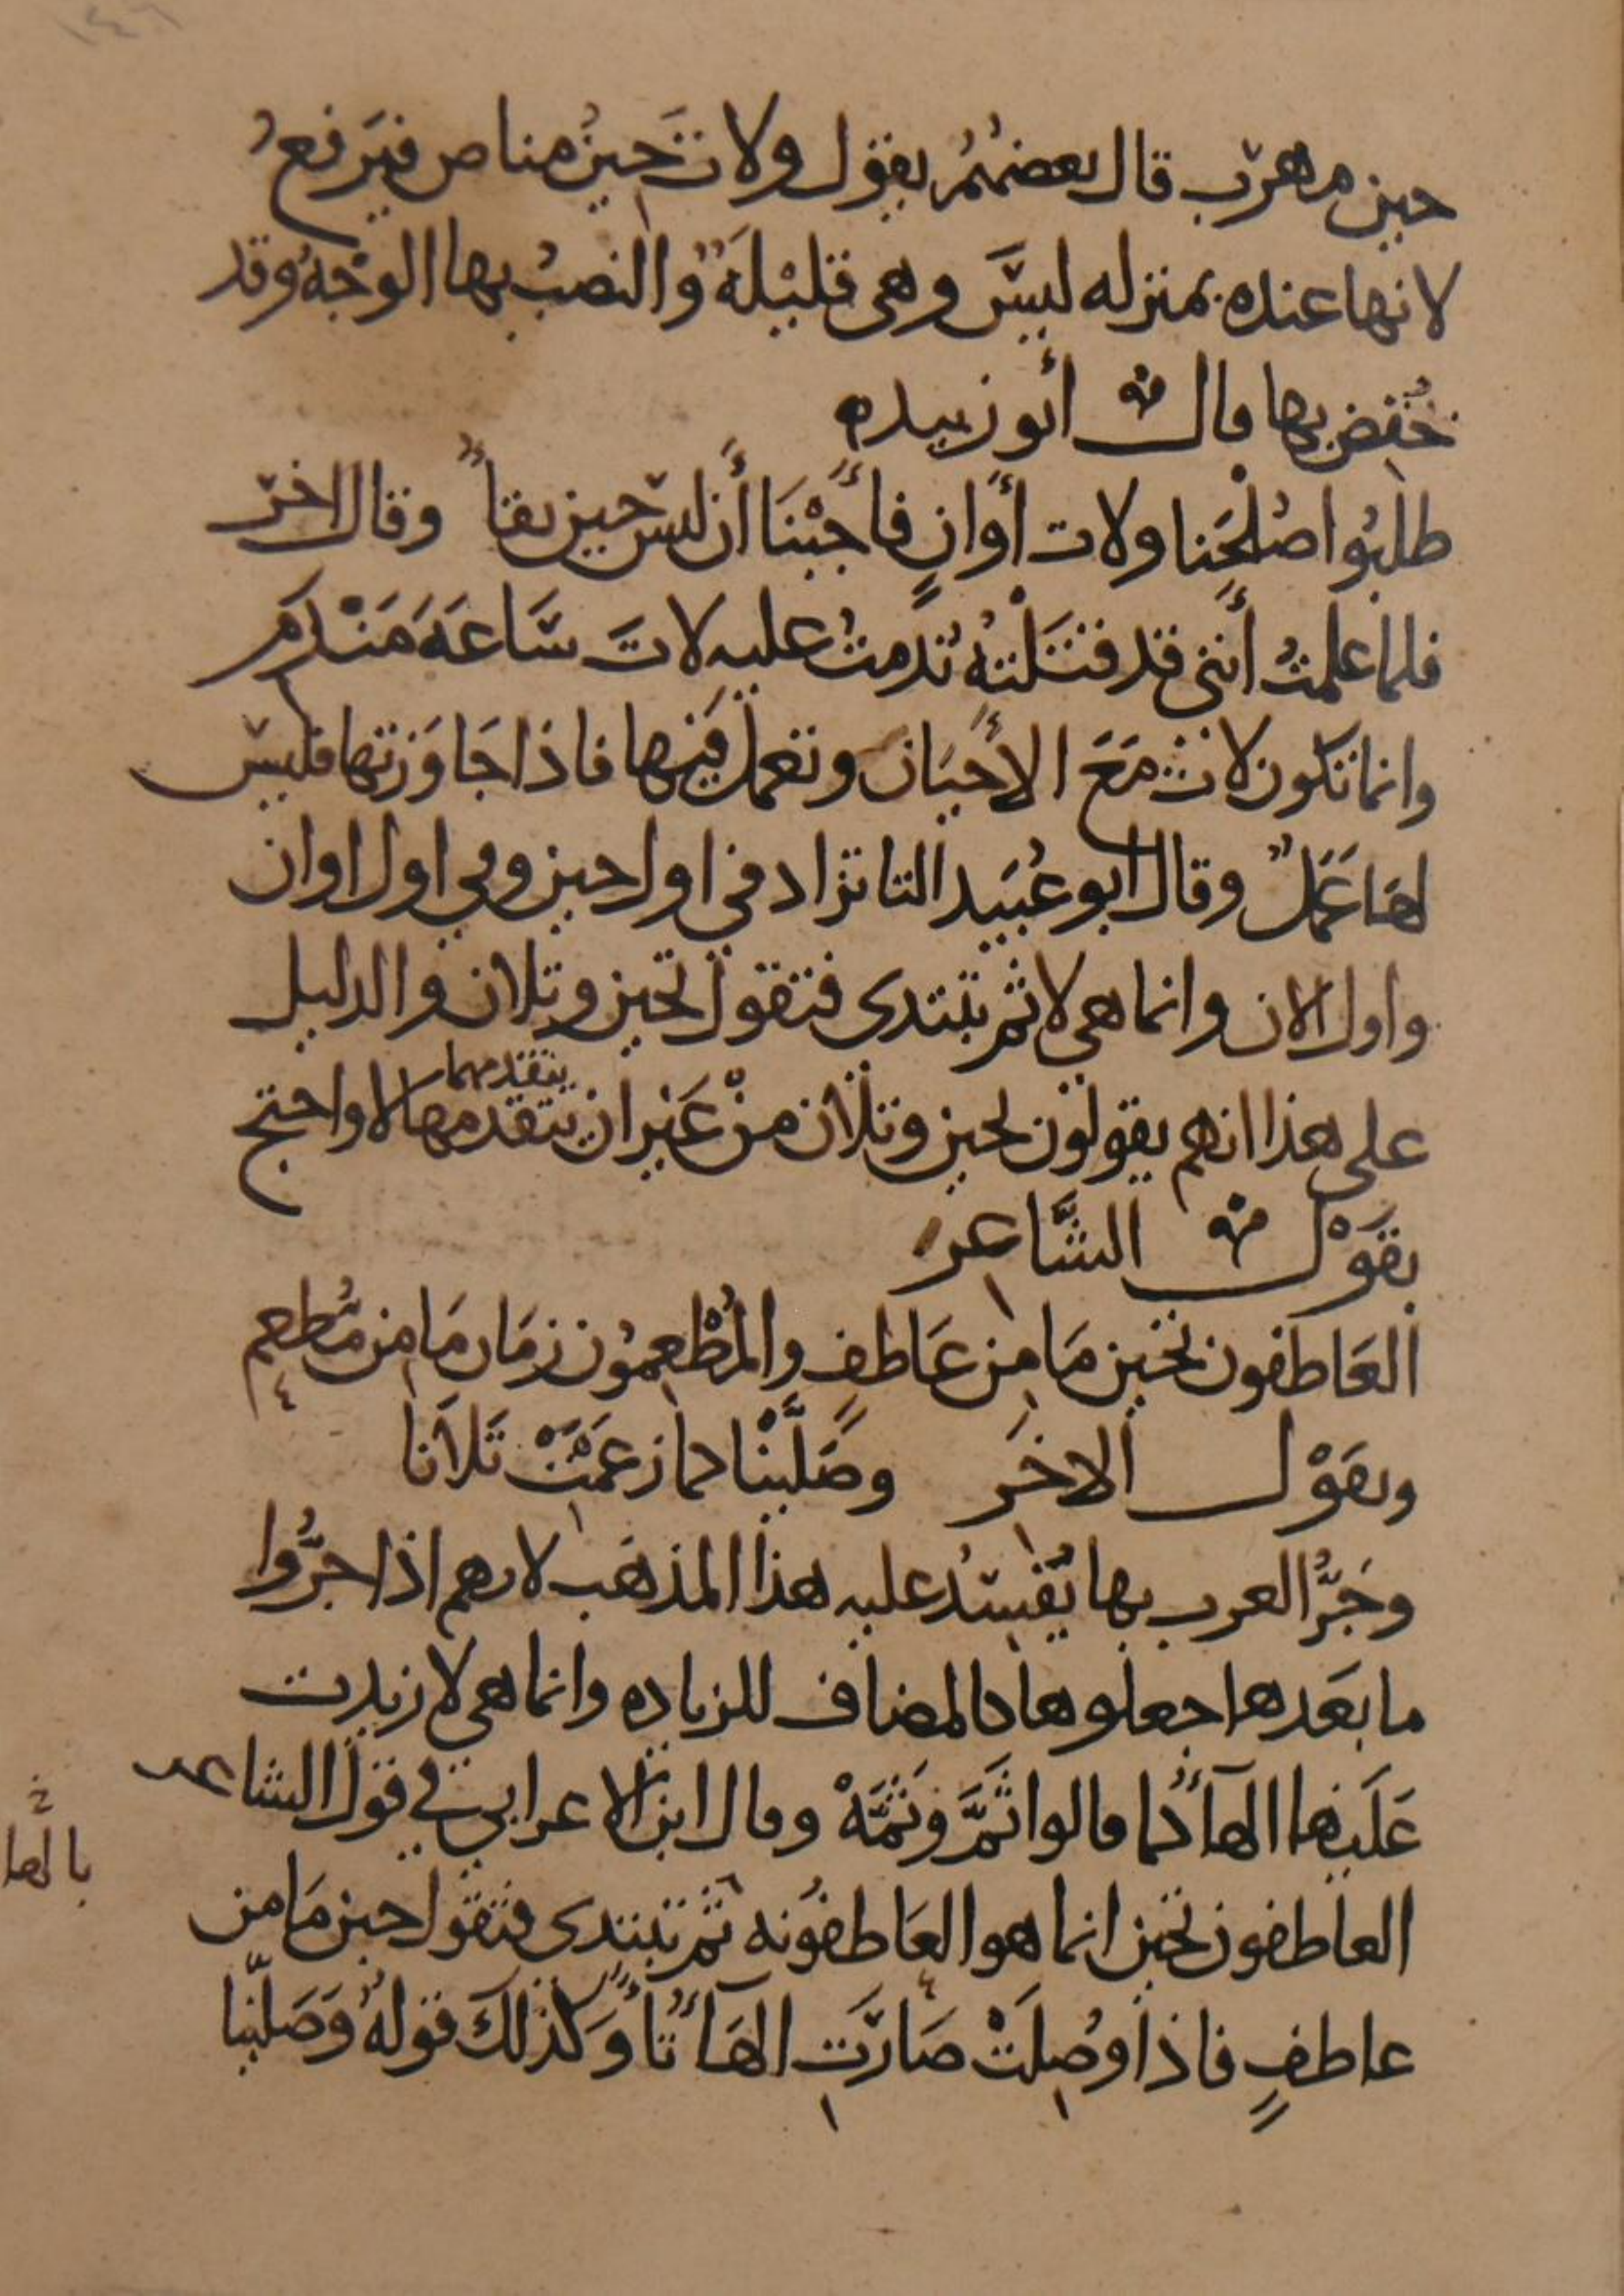 حين مهرب قال بعضهم يقول ولات حين مناص فيرفع
لانها عنده بمنزله ليس وهي قليلة والنصب بها الوجه وقد
خفض بها قال أبو زبيد
طلبوا صلحنا ولات أوان فأجبنا أن ليس حين بقا وقال اخر
فلما علمت أنني قد قتلته ندمت عليه لات ساعة مندم
وانما تكون لات مع الأحيان وتعمل فيها فاذا جاوزتها فليس
لها عمل وقال ابو عبيد التا تزاد في اول حين وفي اول اوان
واول الان وانما هي لا ثم تبتدى فتقول تحين وتلان والدليل
على هذا انهم يقولون تحين وتلان من غير ان يتقدمها لا واحتج
يتقدمهما
بقول الشاعر
العاطفون تحين ما من عاطف والمطعمون زمان ما من مطعم
وبقول الاخر وصلينا كما زعمت تلانا
وجر العرب بها يفسد عليه هذا المذهب لانهم اذا جروا
ما بعدها جعلوها كالمضاف للزياده وانما هي لا زيدت
عليها الهاء كما قالوا ثم وثمه وقال ابن الاعرابي في قول الشاعر
بالها
العاطفون تحين انما هو العاطفونه ثم تبتدى فتقول حين ما من
عاطف فاذا وصلت صارت الهاء تاء وكذلك قوله وصلينا